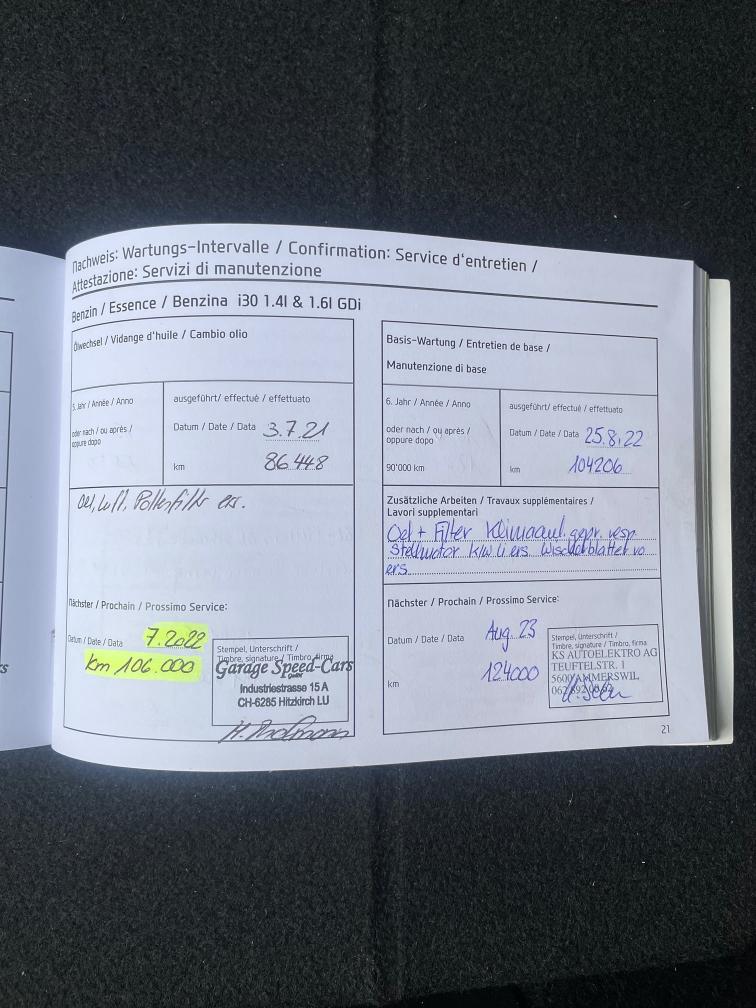 Nachweis: Wartungs-Intervalle / Confirmation: Service d'entretien /
Attestazione: Servizi di manutenzione
Benzin / Essence / Benzina i30 1.4l & 1.6l GDi
Ölwechsel / Vidange d'huile / Cambio olio
5. Jahr / Année / Anno
oder nach / ou après /
oppure dopo
ausgeführt/ effectué / effettuato
Datum / Date / Data 3.7.21
km 86448
Oel, Luft, Pollenfilter ers.
Nächster / Prochain / Prossimo Service:
Datum / Date / Data 7.2022
km 106.000
Stempel, Unterschrift /
Timbre, signature / Timbro, firma
Garage Speed-Cars
GmbH
Industriestrasse 15 A
CH-6285 Hitzkirch LU
Basis-Wartung / Entretien de base /
Manutenzione di base
6. Jahr / Année / Anno
oder nach / ou après /
oppure dopo
90'000 km
ausgeführt/ effectué / effettuato
Datum / Date / Data 25.8.22
km 104206
Zusätzliche Arbeiten / Travaux supplémentaires /
Lavori supplementari
Oel + Filter Klimaanl. gepr. resp.
Stellmotor k/w li ers. Wischerblätter vo
ers.
Nächster / Prochain / Prossimo Service:
Datum / Date / Data Aug. 23
km 124000
Stempel, Unterschrift /
Timbre, signature / Timbro, firma
KS AUTOELEKTRO AG
TEUFTELSTR. 1
5600 AMMERSWIL
21